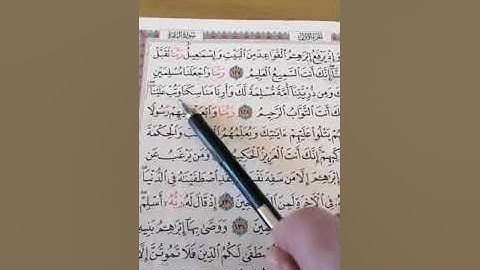 الجزء الأول
سورة البقرة
وَإِذْ يَرْفَعُ إِبْرَٰهِـۧمُ ٱلْقَوَاعِدَ مِنَ ٱلْبَيْتِ وَإِسْمَٰعِيلُ رَبَّنَا تَقَبَّلْ
إِنَّكَ أَنتَ ٱلسَّمِيعُ ٱلْعَلِيمُ ١٢٧ رَبَّنَا وَٱجْعَلْنَا مُسْلِمَيْنِ
لَكَ وَمِن ذُرِّيَّتِنَآ أُمَّةً مُّسْلِمَةً لَّكَ وَأَرِنَا مَنَاسِكَنَا وَتُبْ عَلَيْنَآ
إِنَّكَ أَنتَ ٱلتَّوَّابُ ٱلرَّحِيمُ ١٢٨ رَبَّنَا وَٱبْعَثْ فِيهِمْ رَسُولًا
يَتْلُوا۟ عَلَيْهِمْ ءَايَٰتِكَ وَيُعَلِّمُهُمُ وَٱلْحِكْمَةَ
إِنَّكَ أَنتَ ٱلْعَزِيزُ ٱلْحَكِيمُ وَمَن يَرْغَبُ عَن
إِبْرَٰهِـۧمَ إِلَّا مَن سَفِهَ ٱصْطَفَيْنَٰهُ فِى ٱلدُّنْيَا
فِى ٱلْـَٔاخِرَةِ لَمِنَ ١٣٠ إِذْ قَالَ لَهُۥ رَبُّهُۥٓ أَسْلِمْ
١٣١ وَوَصَّىٰ بِهَآ إِبْرَٰهِـۧمُ بَنِيهِ
ٱصْطَفَىٰ لَكُمُ ٱلدِّينَ فَلَا تَمُوتُنَّ إِلَّا